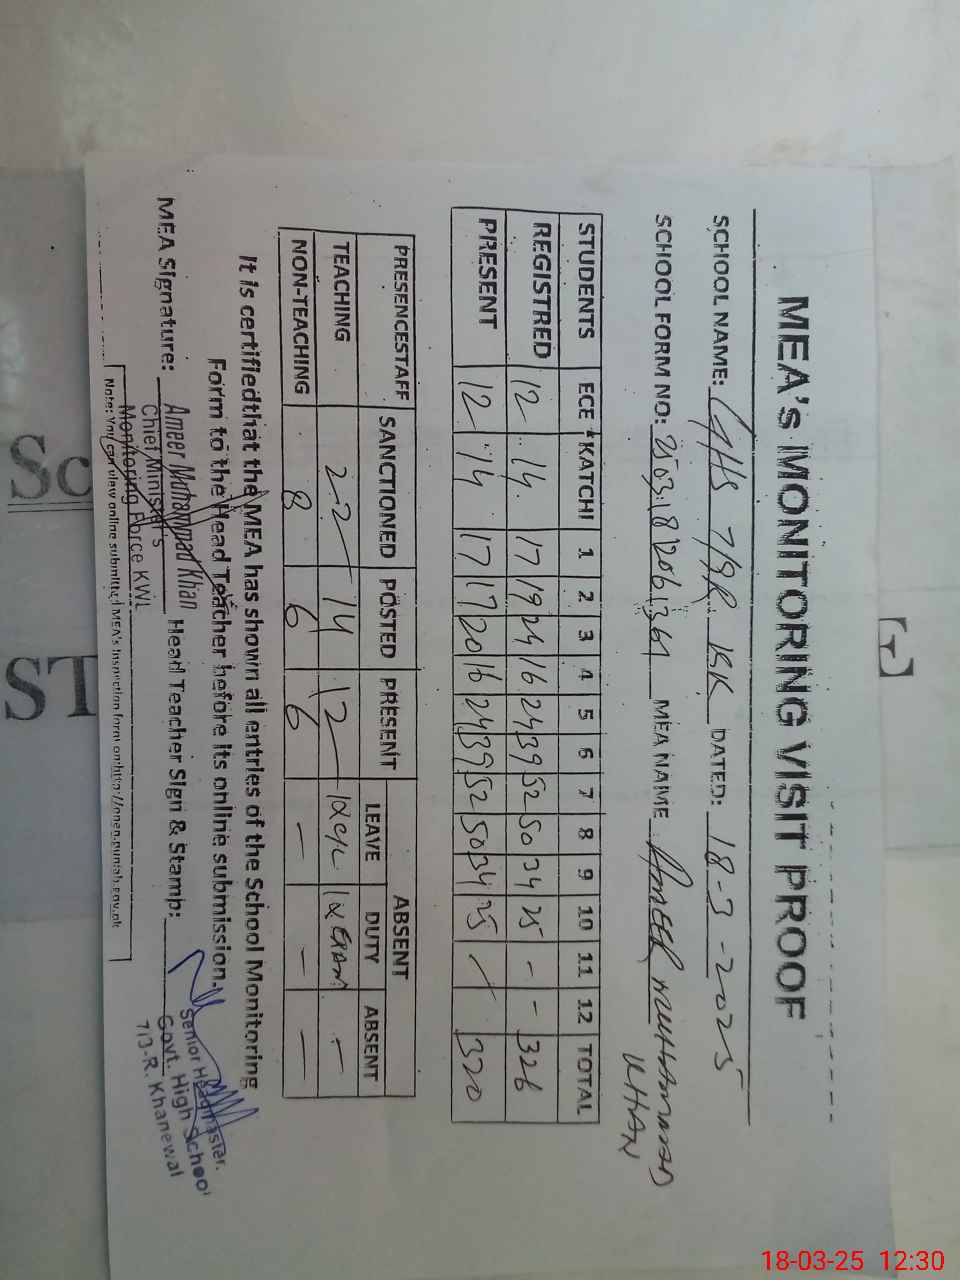 MEA's MONITORING VISIT PROOF
SCHOOL NAME: GHS 7/9R KK DATED: 18-3-2025
SCHOOL FORM NO: 2503182061364 MEA NAME AMEER MUHAMMAD KHAN
STUDENTS ECE KATCHI 1 2 3 4 5 6 7 8 9 10 11 12 TOTAL
REGISTRED 12 14 17 19 24 16 24 39 52 50 34 25 - - 326
PRESENT 12 14 17 17 20 16 24 39 52 50 34 25 / 320
PRESENCESTAFF SANCTIONED POSTED PRESENT ABSENT
LEAVE DUTY ABSENT
TEACHING 22 14 12 1xC/L 1xEXAM -
NON-TEACHING 8 6 6 - - -
It is certifiedthat the MEA has shown all entries of the School Monitoring
Form to the Head Teacher before its online submission.
MEA Signature: Head Teacher Sign & Stamp:
Ameer Muhammad Khan
Chief Minister's
Monitoring Force KWL
Senior Headmaster.
Govt. High School
713-R. Khanewal
Note: You can view online submitted MEA's inspection form on:http://open.punjab.gov.pk
Sc
ST
[T]
18-03-25 12:30